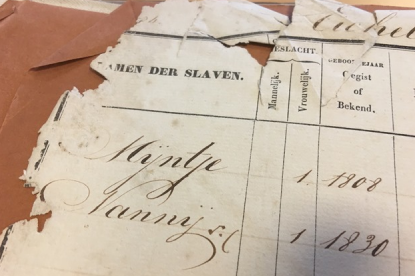 AMEN DER SLAVEN.
ESLACHT.
Mannelijk.
Vrouwelijk.
GEBOORTEJAAR
Gegist
of
Bekend.
Mijntje 1 1808
Nannij 1 1830